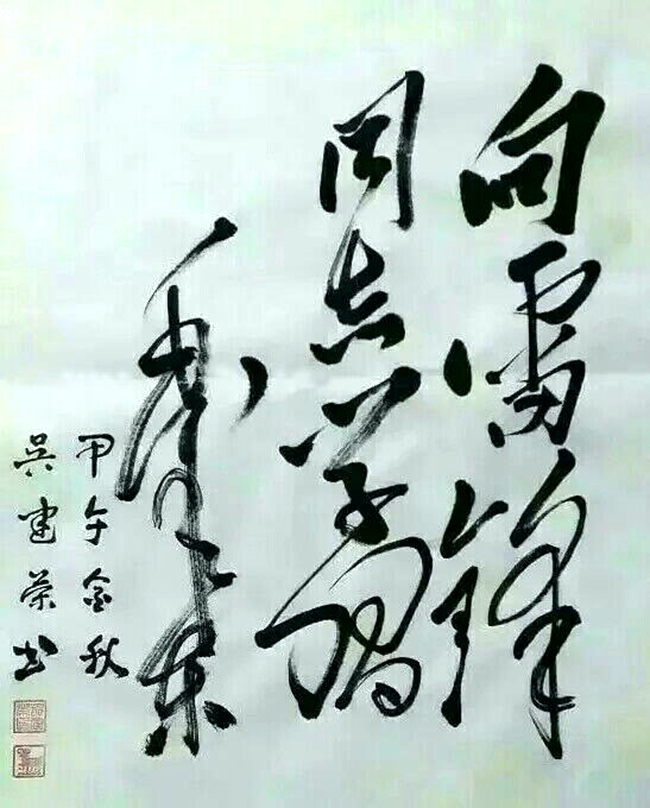 向雷锋
同志学习
毛泽东
甲午金秋
吴建荣书